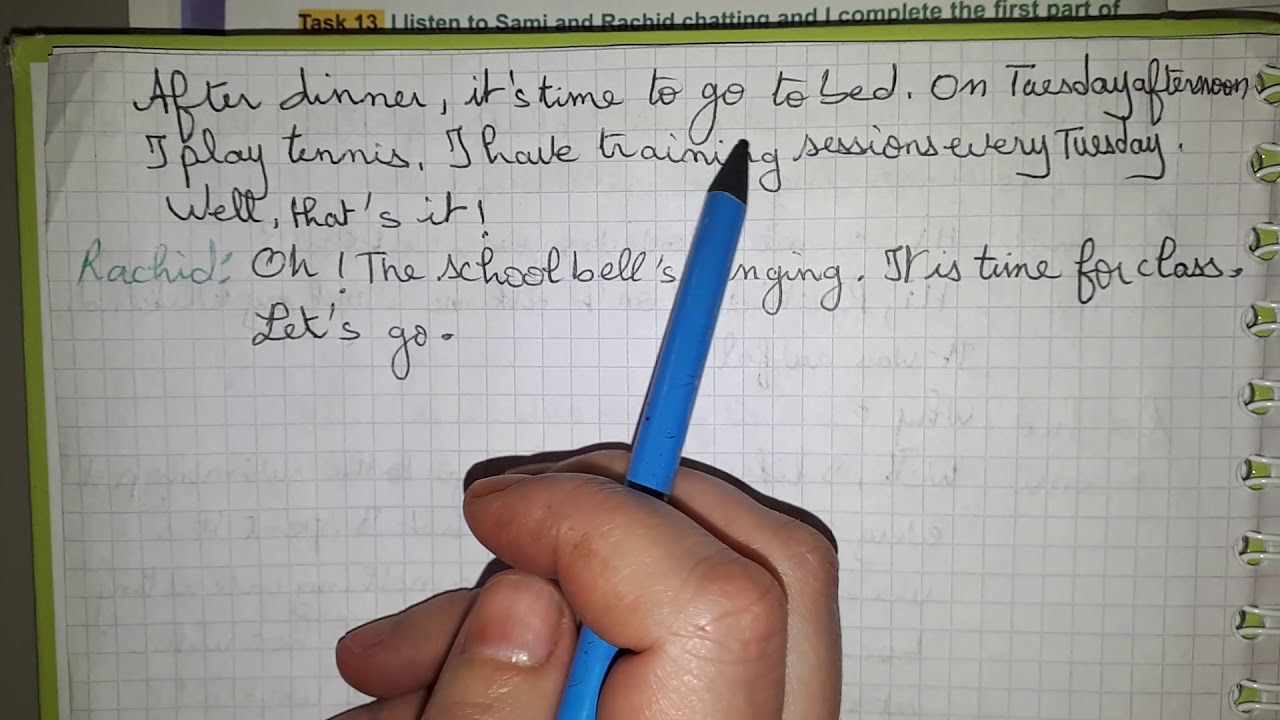 Task 13. I listen to Sami and Rachid chatting and I complete the first part of
After dinner, it's time to go to bed. On Tuesday afternoon
I play tennis. I have training sessions every Tuesday.
Well, that's it!
Rachid: Oh! The school bell's nging. It is time for class.
Let's go.